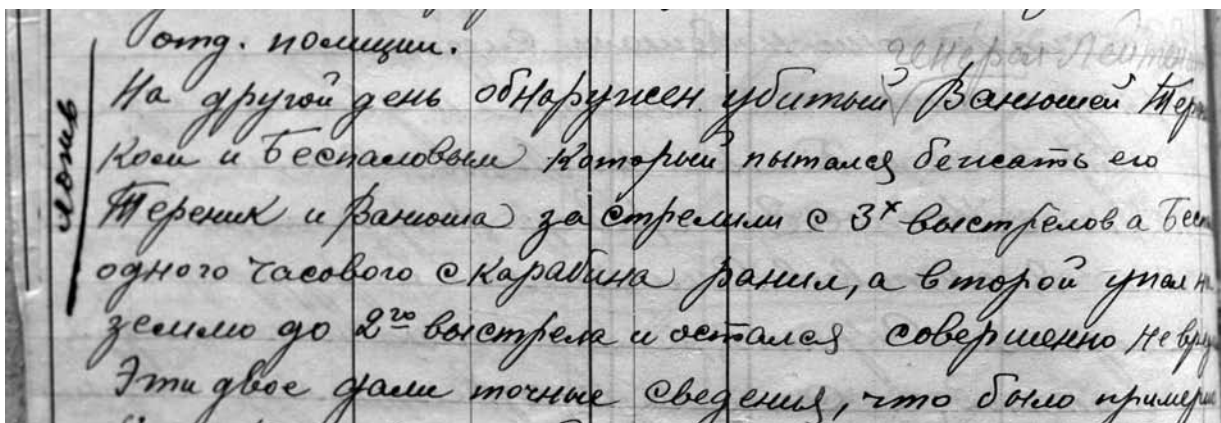 отд. полиции.
генерал Лейтенант
На другой день обнаружен убитый Ванюшей Тер
ком и Беспаловым который пытался бежать его
Тереник и Ванюша за стрелили с 3х выстрелов а Бесп
одного часового с карабина ранил, а второй упал на
землю до 2го выстрела и остался совершенно не вред
Эти двое дали точные сведения, что было пример